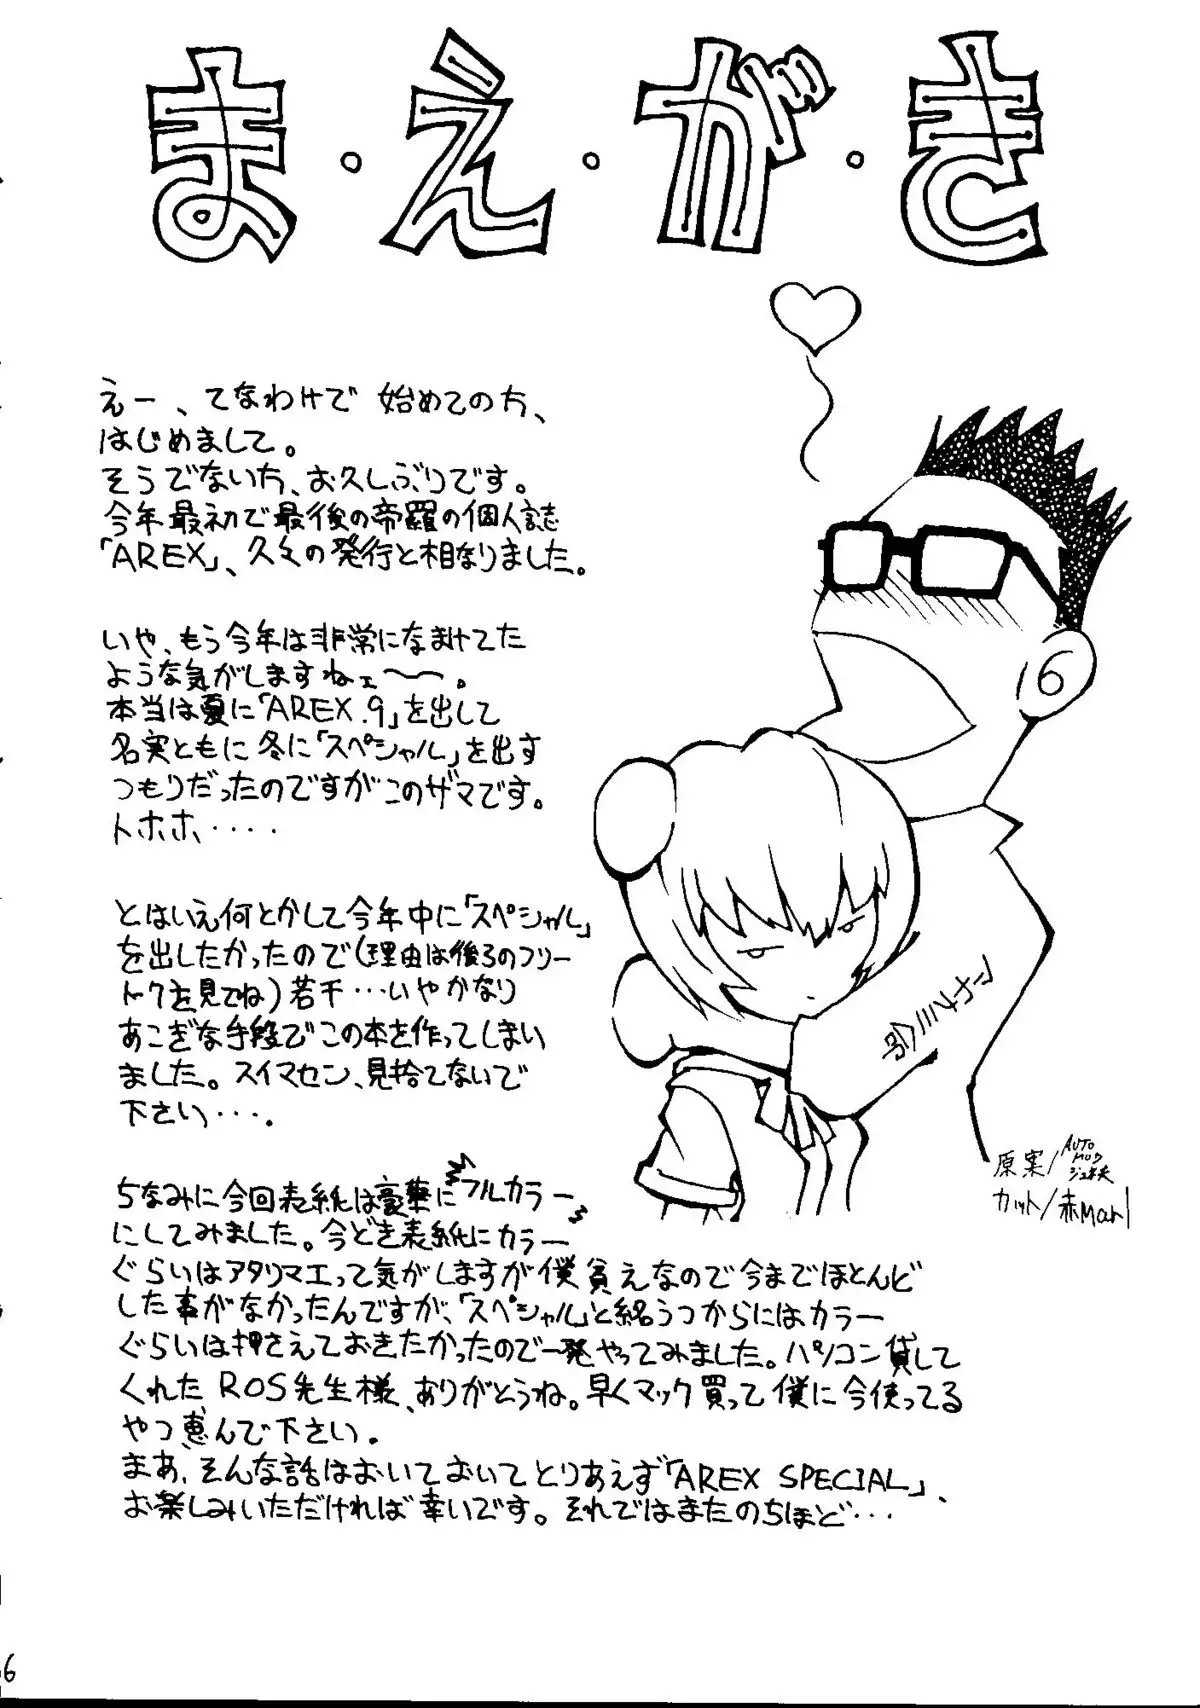 ま・え・が・き
えー、てなわけで 始めての方、
はじめまして。
そうでない方、お久しぶりです。
今年最初で最後の帝羅の個人誌
「AREX」、久々の発行と相なりました。
いや、もう今年は非常になまけてた
ような気がしますねェ〜〜。
本当は夏に「AREX.9」を出して
名実ともに冬に「スペシャル」を出す
つもりだったのですがこのザマです。
トホホ・・・・
とはいえ何とかして今年中に「スペシャル」
を出したかったので(理由は後ろのフリー
トークを見てね)若干・・・いやかなり
あこぎな手段でこの本を作ってしまい
ました。スイマセン、見捨てないで
下さい・・・。
ちなみに今回表紙は豪華にフルカラー
にしてみました。今どき表紙にカラー
ぐらいはアタリマエって気がしますが僕貧えなので今までほとんど
した事がなかったんですが、「スペシャル」と銘うつからにはカラー
ぐらいは押さえておきたかったので一発やってみました。パソコン貸して
くれたROS先生様、ありがとうね。早くマック買って僕に今使ってる
やつ恵んで下さい。
まあ、そんな話はおいておいてとりあえず「AREX SPECIAL」、
お楽しみいただければ幸いです。それではまたのちほど・・・
原案/AUTO
カット/赤Marl
6